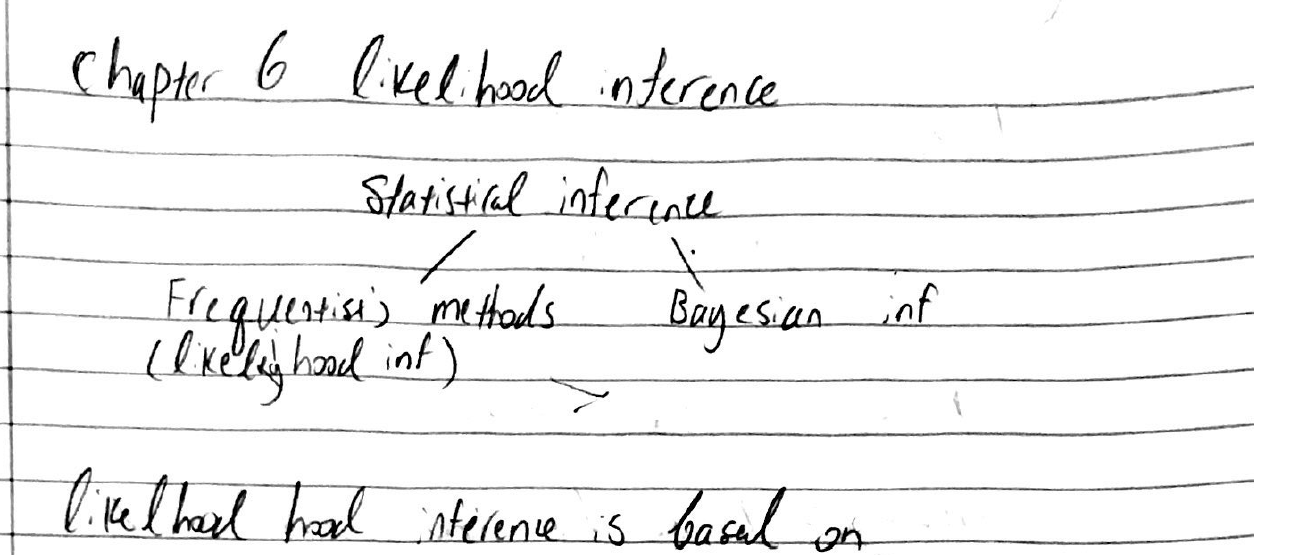 Chapter 6 likelihood inference
Statistical inference
Frequentist methods Bayesian inf
(likelihood inf)
likelhood hood inference is based on